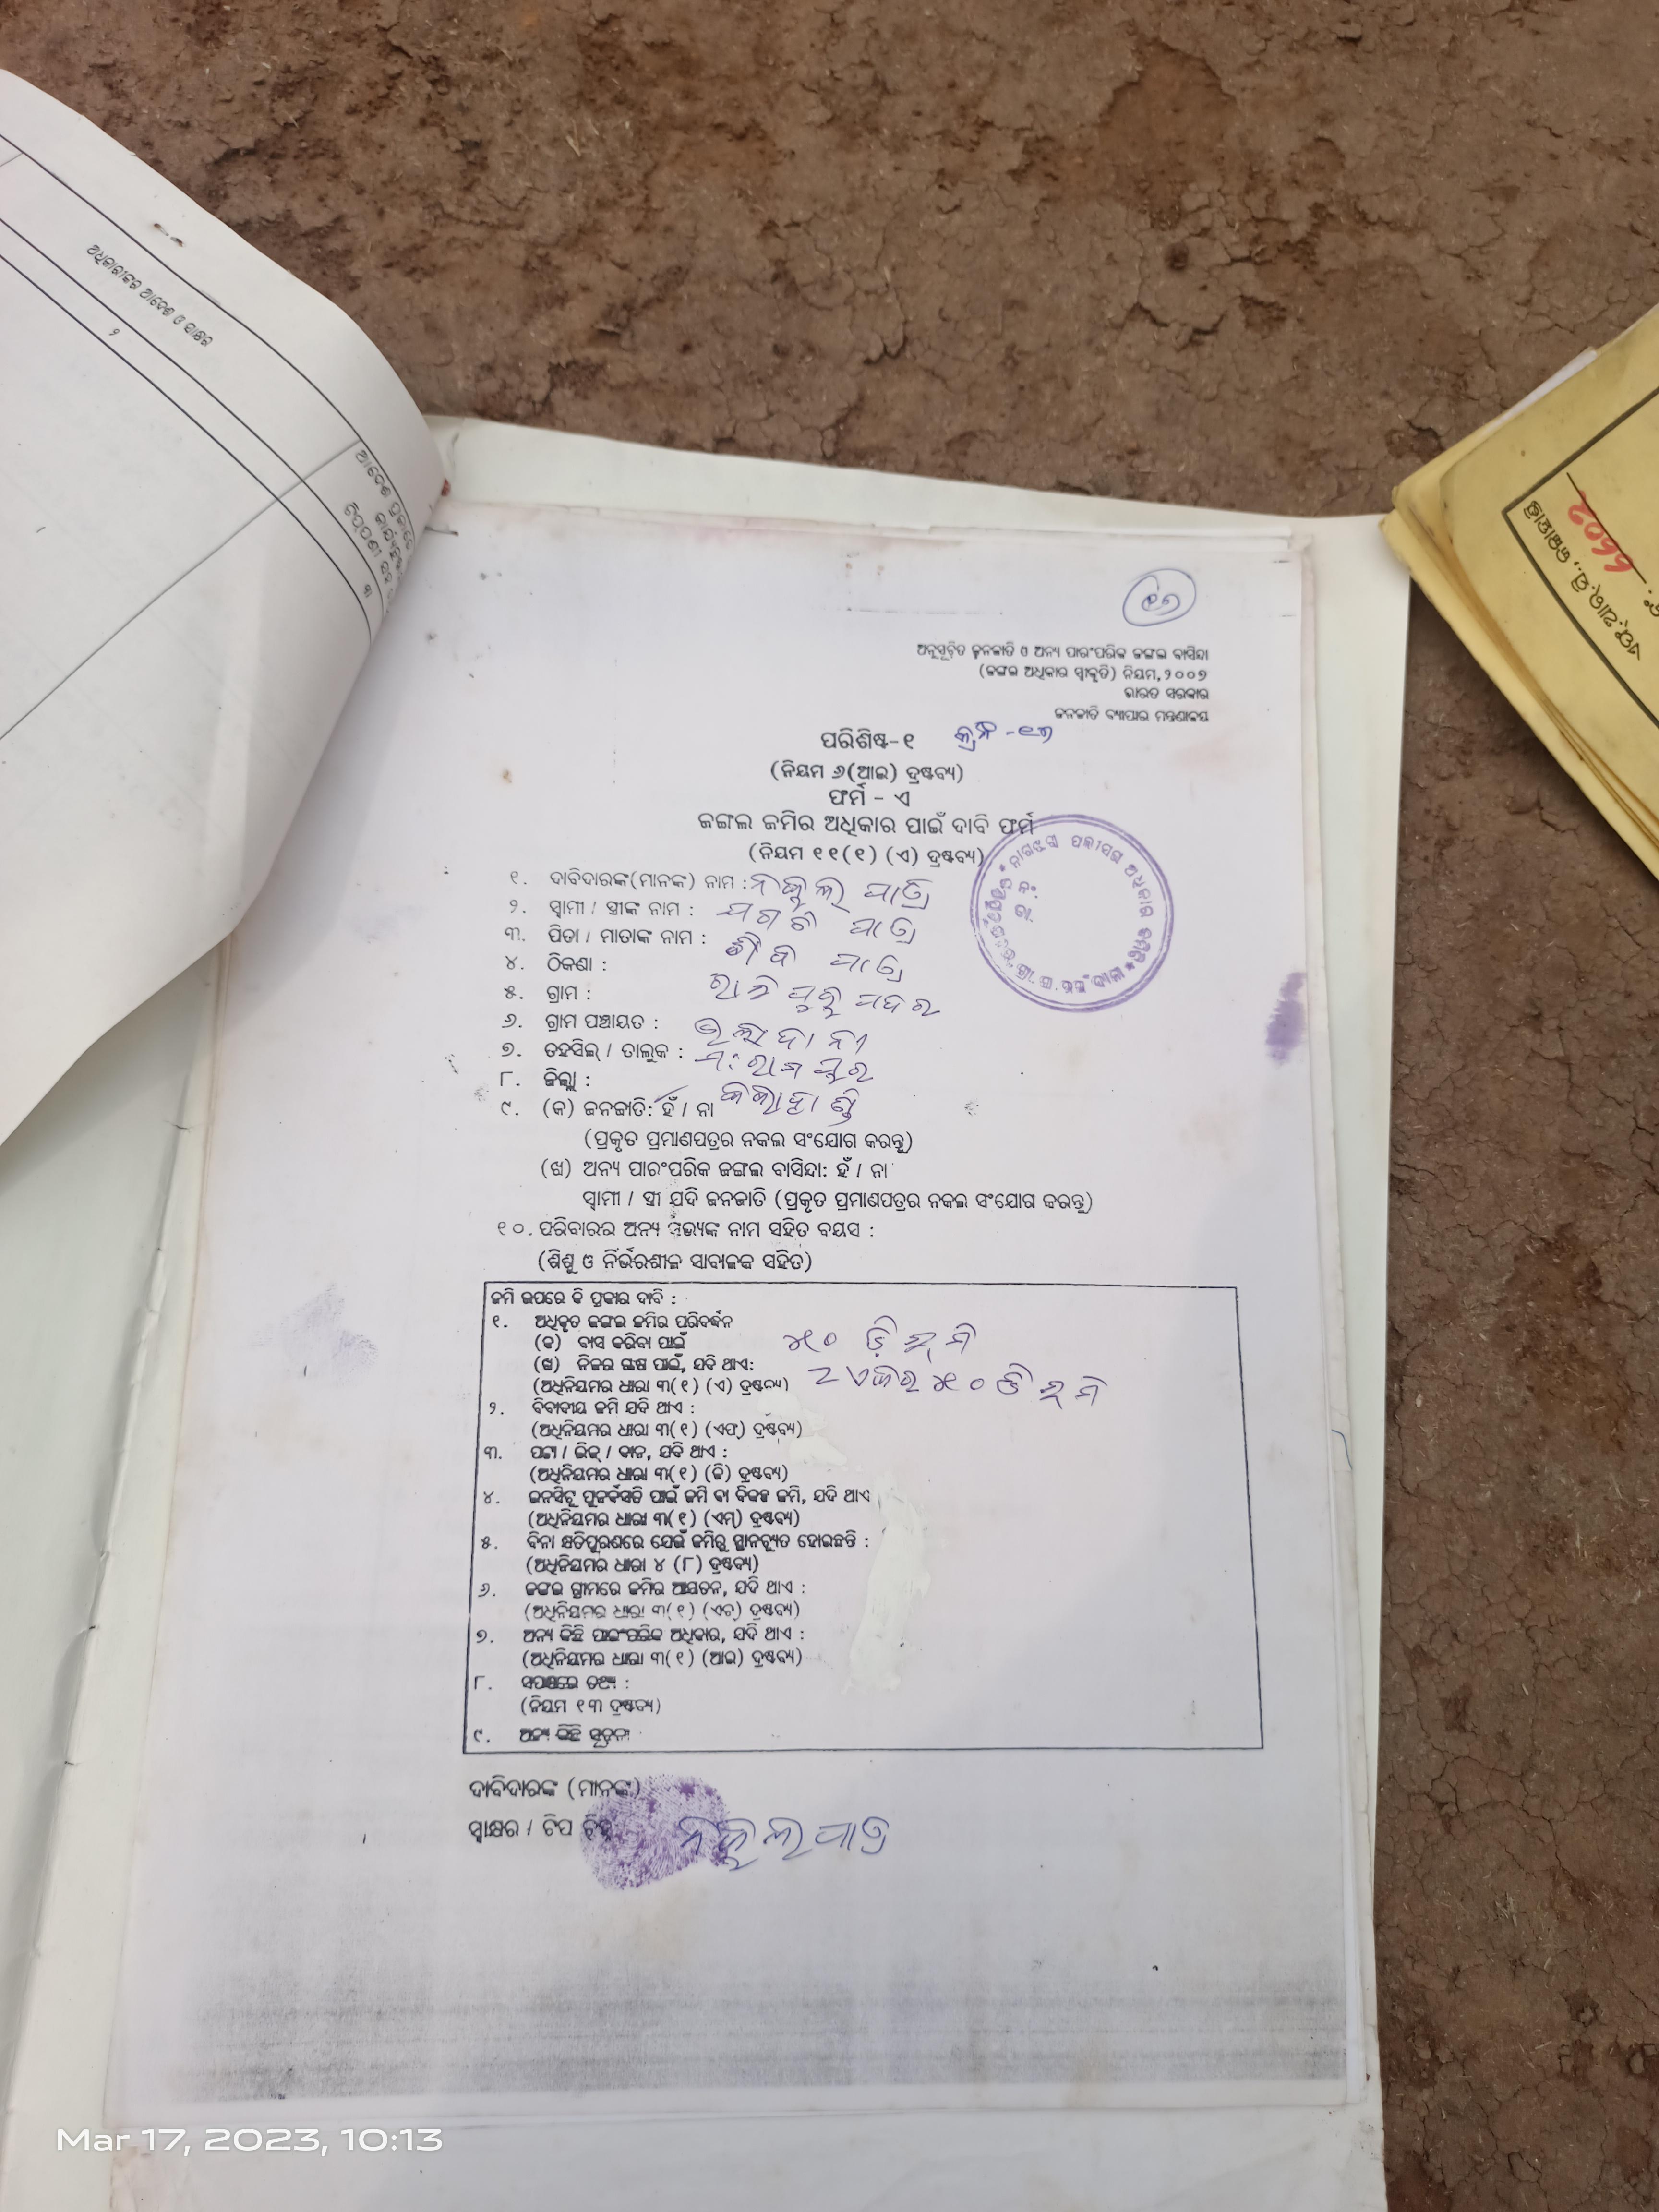 ଅଧିକାରୀଙ୍କର ଆଦେଶ ଓ ସାକ୍ଷର
୨
ଆଦେଶ ପ୍ରକାରେ
କାର୍ଯ୍ୟାନୁଷ୍ଠାନ
ଟିପ୍ପଣୀ ସହ
୩
ଏଫ୍.ଆର୍.ସି., କଳାହାଣ୍ଡି
ଅନୁସୂଚିତ ଜନଜାତି ଓ ଅନ୍ୟ ପାରଂପରିକ ଜଙ୍ଗଲ ବାସିନ୍ଦା
(ଜଙ୍ଗଲ ଅଧିକାର ସ୍ୱୀକୃତି) ନିୟମ,୨୦୦୭
ଭାରତ ସରକାର
ଜନଜାତି ବ୍ୟାପାର ମନ୍ତ୍ରଣାଳୟ
ପରିଶିଷ୍ଟ-୧
(ନିୟମ ୬(ଆଇ) ଦ୍ରଷ୍ଟବ୍ୟ)
ଫର୍ମ - ଏ
ଜଙ୍ଗଲ ଜମିର ଅଧିକାର ପାଇଁ ଦାବି ଫର୍ମ
(ନିୟମ ୧୧(୧) (ଏ) ଦ୍ରଷ୍ଟବ୍ୟ)
୧. ଦାବିଦାରଙ୍କ(ମାନଙ୍କ) ନାମ : ନକୁଲ ପାତ୍ର
୨. ସ୍ୱାମୀ / ସ୍ତ୍ରୀଙ୍କ ନାମ : ପାତ୍ର
୩. ପିତା / ମାତାଙ୍କ ନାମ : ପାତ୍ର
୪. ଠିକଣା :
୫. ଗ୍ରାମ :
୬. ଗ୍ରାମ ପଞ୍ଚାୟତ :
୭. ତହସିଲ୍ / ତାଲୁକ : ମ: ରାମପୁର
୮. ଜିଲ୍ଲା : କଳାହାଣ୍ଡି
୯. (କ) ଜନଜାତି: ହଁ / ନା
(ପ୍ରକୃତ ପ୍ରମାଣପତ୍ରର ନକଲ ସଂଯୋଗ କରନ୍ତୁ)
(ଖ) ଅନ୍ୟ ପାରଂପରିକ ଜଙ୍ଗଲ ବାସିନ୍ଦା: ହଁ / ନା
ସ୍ୱାମୀ / ସ୍ତ୍ରୀ ଯଦି ଜନଜାତି (ପ୍ରକୃତ ପ୍ରମାଣପତ୍ରର ନକଲ ସଂଯୋଗ କରନ୍ତୁ)
୧୦. ପରିବାରର ଅନ୍ୟ ସଭ୍ୟଙ୍କ ନାମ ସହିତ ବୟସ :
(ଶିଶୁ ଓ ନିର୍ଭରଶୀଳ ସାବାଳକ ସହିତ)
ଜମି ଉପରେ କି ପ୍ରକାର ଦାବି :
୧. ଅଧିକୃତ ଜଙ୍ଗଲ ଜମିର ପରିବର୍ଦ୍ଧନ
(କ) ବାସ କରିବା ପାଇଁ ୫୦ ଡ଼ିସ୍ମି
(ଖ) ନିଜର ଚାଷ ପାଇଁ, ଯଦି ଥାଏ:
(ଅଧିନିୟମର ଧାରା ୩(୧) (ଏ) ଦ୍ରଷ୍ଟବ୍ୟ) 2 ଏକର ୫୦ ଡିସ୍ମି
୨. ବିବାଦୀୟ ଜମି ଯଦି ଥାଏ :
(ଅଧିନିୟମର ଧାରା ୩(୧) (ଏଫ୍) ଦ୍ରଷ୍ଟବ୍ୟ)
୩. ପଟ୍ଟା / ଲିଜ୍ / ଦାନ, ଯଦି ଥାଏ :
(ଅଧିନିୟମର ଧାରା ୩(୧) (ଜି) ଦ୍ରଷ୍ଟବ୍ୟ)
୪. ଇନସିଟୁ ପୁନର୍ବସତି ପାଇଁ ଜମି ବା ବିକଳ୍ପ ଜମି, ଯଦି ଥାଏ
(ଅଧିନିୟମର ଧାରା ୩(୧) (ଏମ୍) ଦ୍ରଷ୍ଟବ୍ୟ)
୫. ବିନା କ୍ଷତିପୂରଣରେ ଯେଉଁ ଜମିରୁ ସ୍ଥାନଚ୍ୟୁତ ହୋଇଛନ୍ତି :
(ଅଧିନିୟମର ଧାରା ୪ (୮) ଦ୍ରଷ୍ଟବ୍ୟ)
୬. ଜଙ୍ଗଲ ଗ୍ରାମରେ ଜମିର ଆୟତନ, ଯଦି ଥାଏ :
(ଅଧିନିୟମର ଧାରା ୩(୧) (ଏଚ୍) ଦ୍ରଷ୍ଟବ୍ୟ)
୭. ଅନ୍ୟ କିଛି ପାରଂପରିକ ଅଧିକାର, ଯଦି ଥାଏ :
(ଅଧିନିୟମର ଧାରା ୩(୧) (ଆଇ) ଦ୍ରଷ୍ଟବ୍ୟ)
୮. ସପକ୍ଷରେ ତଥ୍ୟ :
(ନିୟମ ୧୩ ଦ୍ରଷ୍ଟବ୍ୟ)
୯. ଅନ୍ୟ କିଛି ସୂଚନା
ଦାବିଦାରଙ୍କ (ମାନଙ୍କ)
ସ୍ୱାକ୍ଷର / ଟିପ ଚିହ୍ନ ନକୁଲ ପାତ୍ର
Mar 17, 2023, 10:13